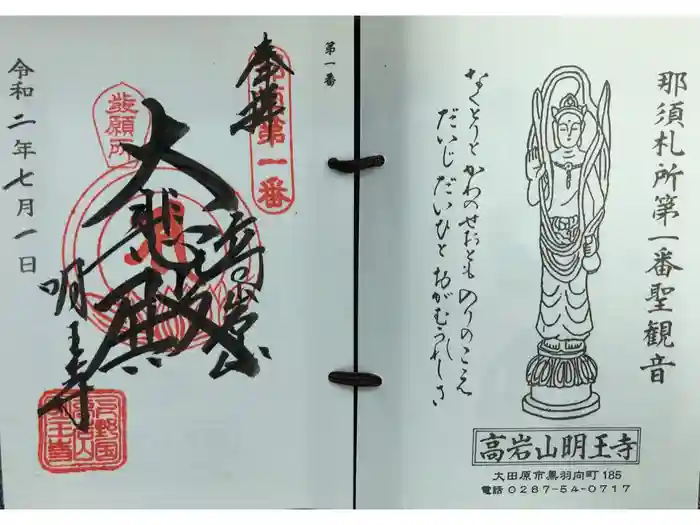 那須札所第一番聖観音
なくとりと かわのせおとも のりのこえ
だいじ だいひと おがむうれしさ
高岩山明王寺
大田原市黒羽向町 185
電話 0287-54-0717
第一番
奉拝
第一番
発願所
大悲殿
高岩山
明王寺
令和二年七月一日